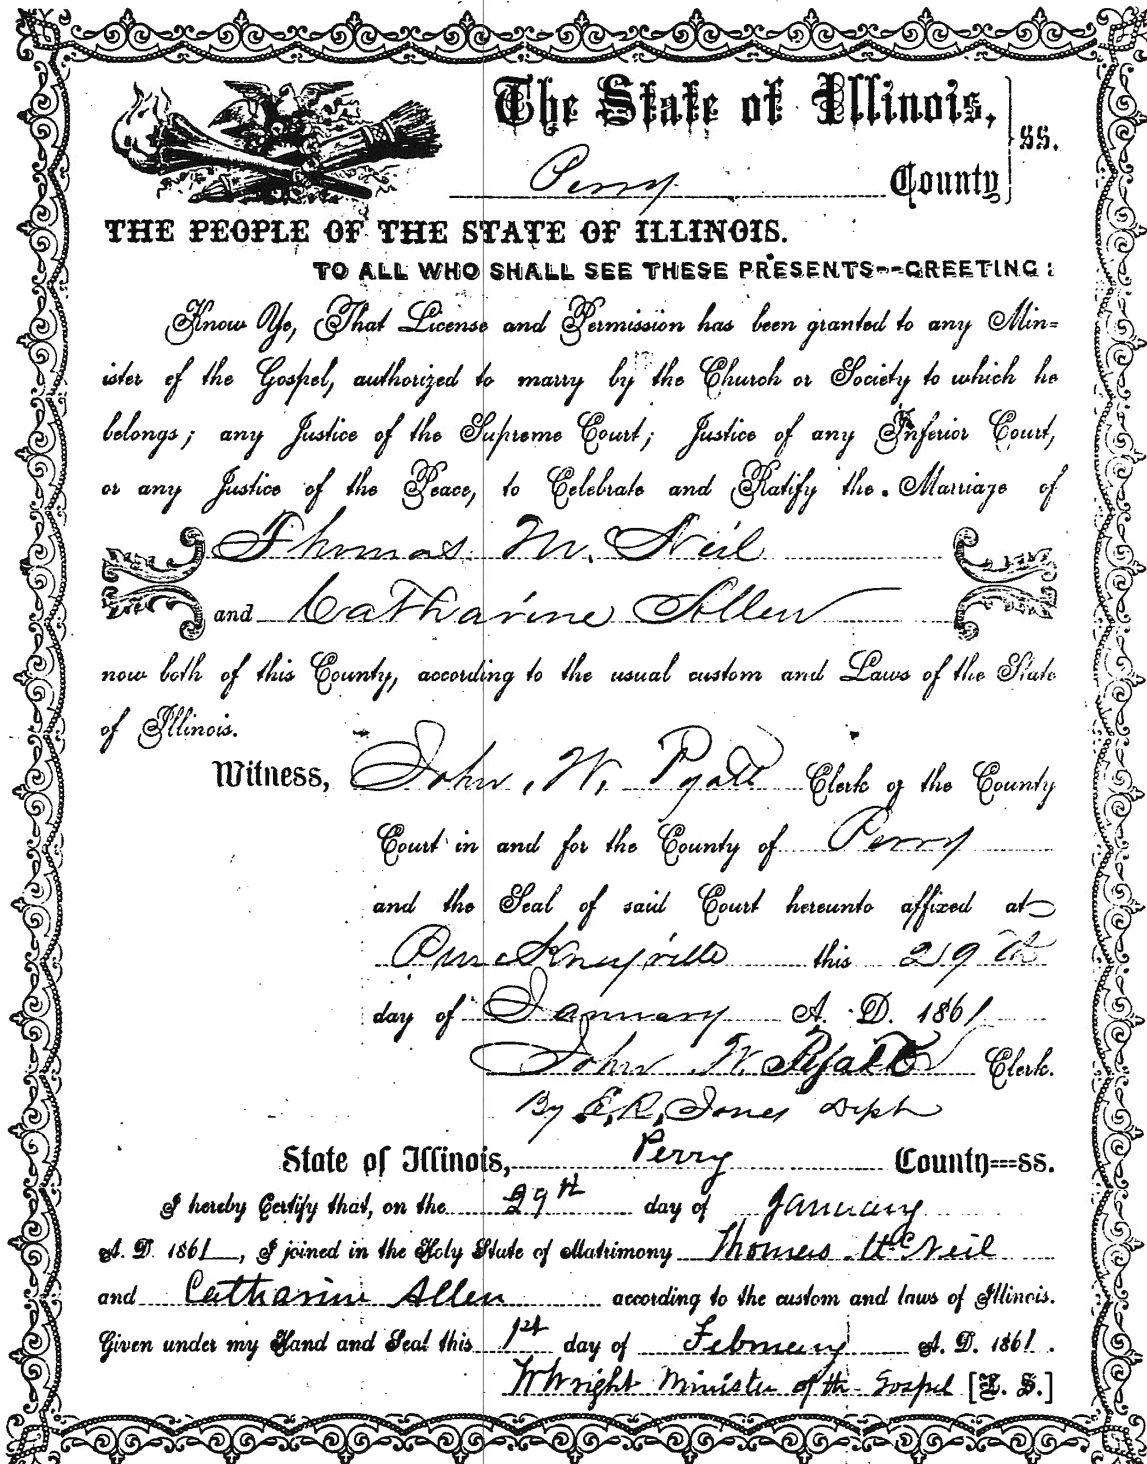 The State of Illinois, } ss.
Perry County
THE PEOPLE OF THE STATE OF ILLINOIS.
TO ALL WHO SHALL SEE THESE PRESENTS--GREETING:
Know Ye, That License and Permission has been granted to any Min=
ister of the Gospel, authorized to marry by the Church or Society to which he
belongs; any Justice of the Supreme Court; Justice of any Inferior Court,
or any Justice of the Peace, to Celebrate and Ratify the Marriage of
Thomas M. Neil
and Catharine Allen
now both of this County, according to the usual custom and Laws of the State
of Illinois.
Witness, John W. Pyatt Clerk of the County
Court in and for the County of Perry
and the Seal of said Court hereunto affixed at
Pinckneyville this 29th
day of January A. D. 1861
John W. Pyatt Clerk.
By E. R. Jones Dept
State of Illinois, Perry County==ss.
I hereby Certify that, on the 29th day of January
A. D. 1861, I joined in the Holy State of Matrimony Thomas McNeil
and Catharine Allen according to the custom and laws of Illinois.
Given under my Hand and Seal this 1st day of February A. D. 1861.
W Wright Minister of the Gospel [L. S.]